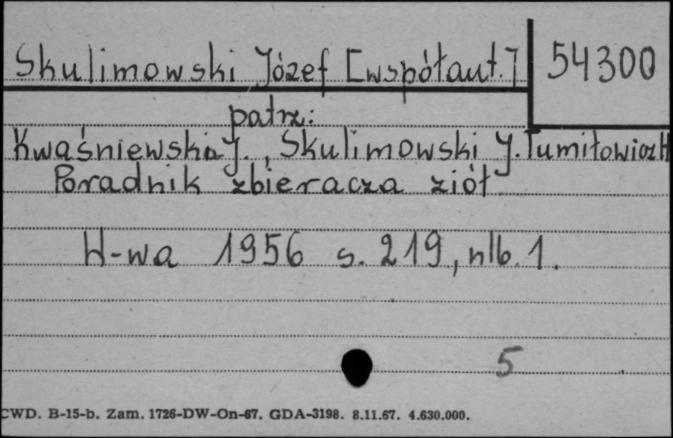 Skulimowski Józef [współaut.]
54300
patrz:
Kwaśniewska J., Skulimowski J. Tumiłowicz H
Poradnik zbieracza ziół
W-wa 1956 s. 219, nlb. 1.
5
CWD. B-15-b. Zam. 1726-DW-On-67. GDA-3198. 8.11.67. 4.630.000.